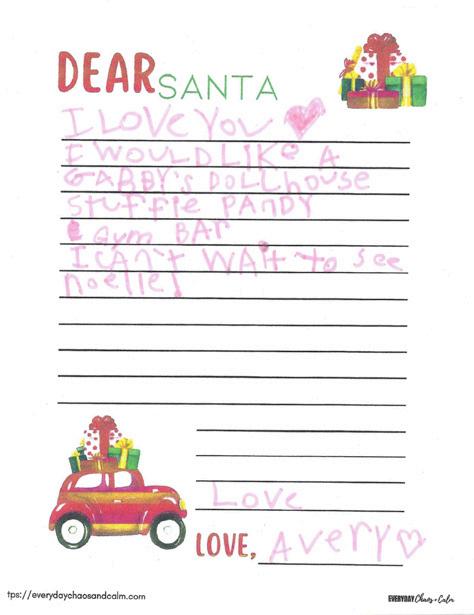 DEAR SANTA
I LOVE YOU
I WOULD LIKE A
GABBY'S DOLLHOUSE
Stuffie PANDY
& Gym BAR
I CAn't WAit to see
noelle!
Love
LOVE, Avery
tps://everydaychaosandcalm.com
EVERYDAY Chaos + Calm